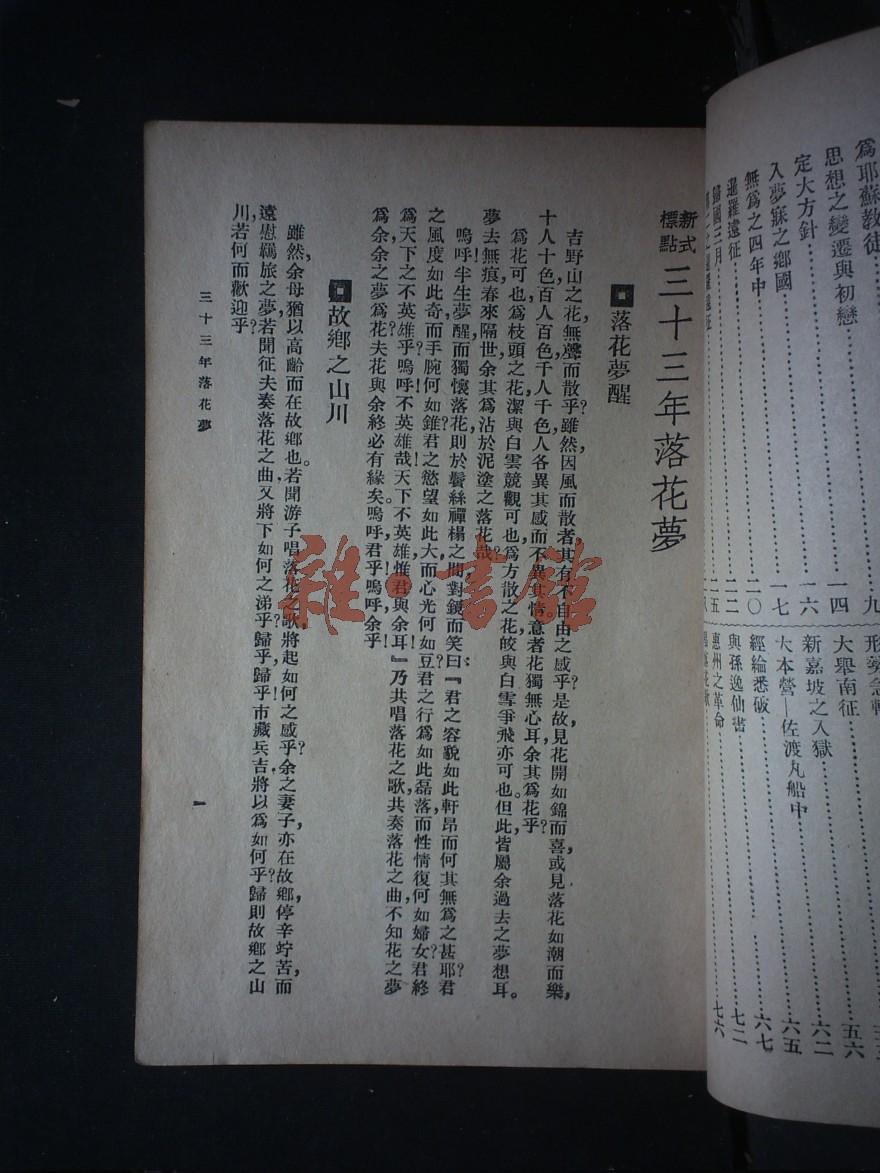 爲耶蘇教徒……九
思想之變遷與初戀……一四
定大方針……一六
入夢寐之鄉國……一七
無爲之四年中……二〇
暹羅遠征……二二
歸國三月……二五
形勢急轉
大舉南征……五六
新嘉坡之入獄……六二
大本營—佐渡丸船中……六五
經綸悉破……六七
與孫逸仙書……七二
惠州之革命……七六
新式標點 三十三年落花夢
落花夢醒
吉野山之花，無聲而散乎？雖然，因風而散者，其有不自由之感乎？是故，見花開如錦而喜，或見落花如潮而樂，
十人十色，百人百色，千人千色，人各異其感，而不異其情。意者花獨無心耳，余其爲花乎？
爲花可也，爲枝頭之花，潔與白雲競觀可也，爲方散之花，皎與白雪爭飛亦可也。但此皆屬余過去之夢想耳。
夢去無痕，春來隔世，余其爲沾於泥塗之落花哉？
嗚呼！半生夢醒，而獨懷落花，則於鬢絲禪榻之間，對鏡而笑曰：『君之容貌如此軒昂，而何其無爲之甚耶？君
之風度如此奇，而手腕何如錐？君之慾望如此大，而心光何如豆？君之行爲如此磊落，而性情復何如婦女？君終
爲天下之不英雄乎！嗚呼！不英雄哉！天下不英雄，惟君與余耳！』乃共唱落花之歌，共奏落花之曲，不知花之夢
爲余，余之夢爲花，夫花與余終必有緣矣。嗚呼君乎！嗚呼余乎！
故鄉之山川
雖然，余母猶以高齡而在故鄉也。若聞游子唱落花之歌，將起如何之感乎？余之妻子亦在故鄉，停辛竚苦，而
遠慰羈旅之夢，若聞征夫奏落花之曲，又將下如何之涕乎？歸乎歸乎！市藏、兵吉將以爲如何乎？歸則故鄉之山
川若何而歡迎乎？
三十三年落花夢
一
雜·書館